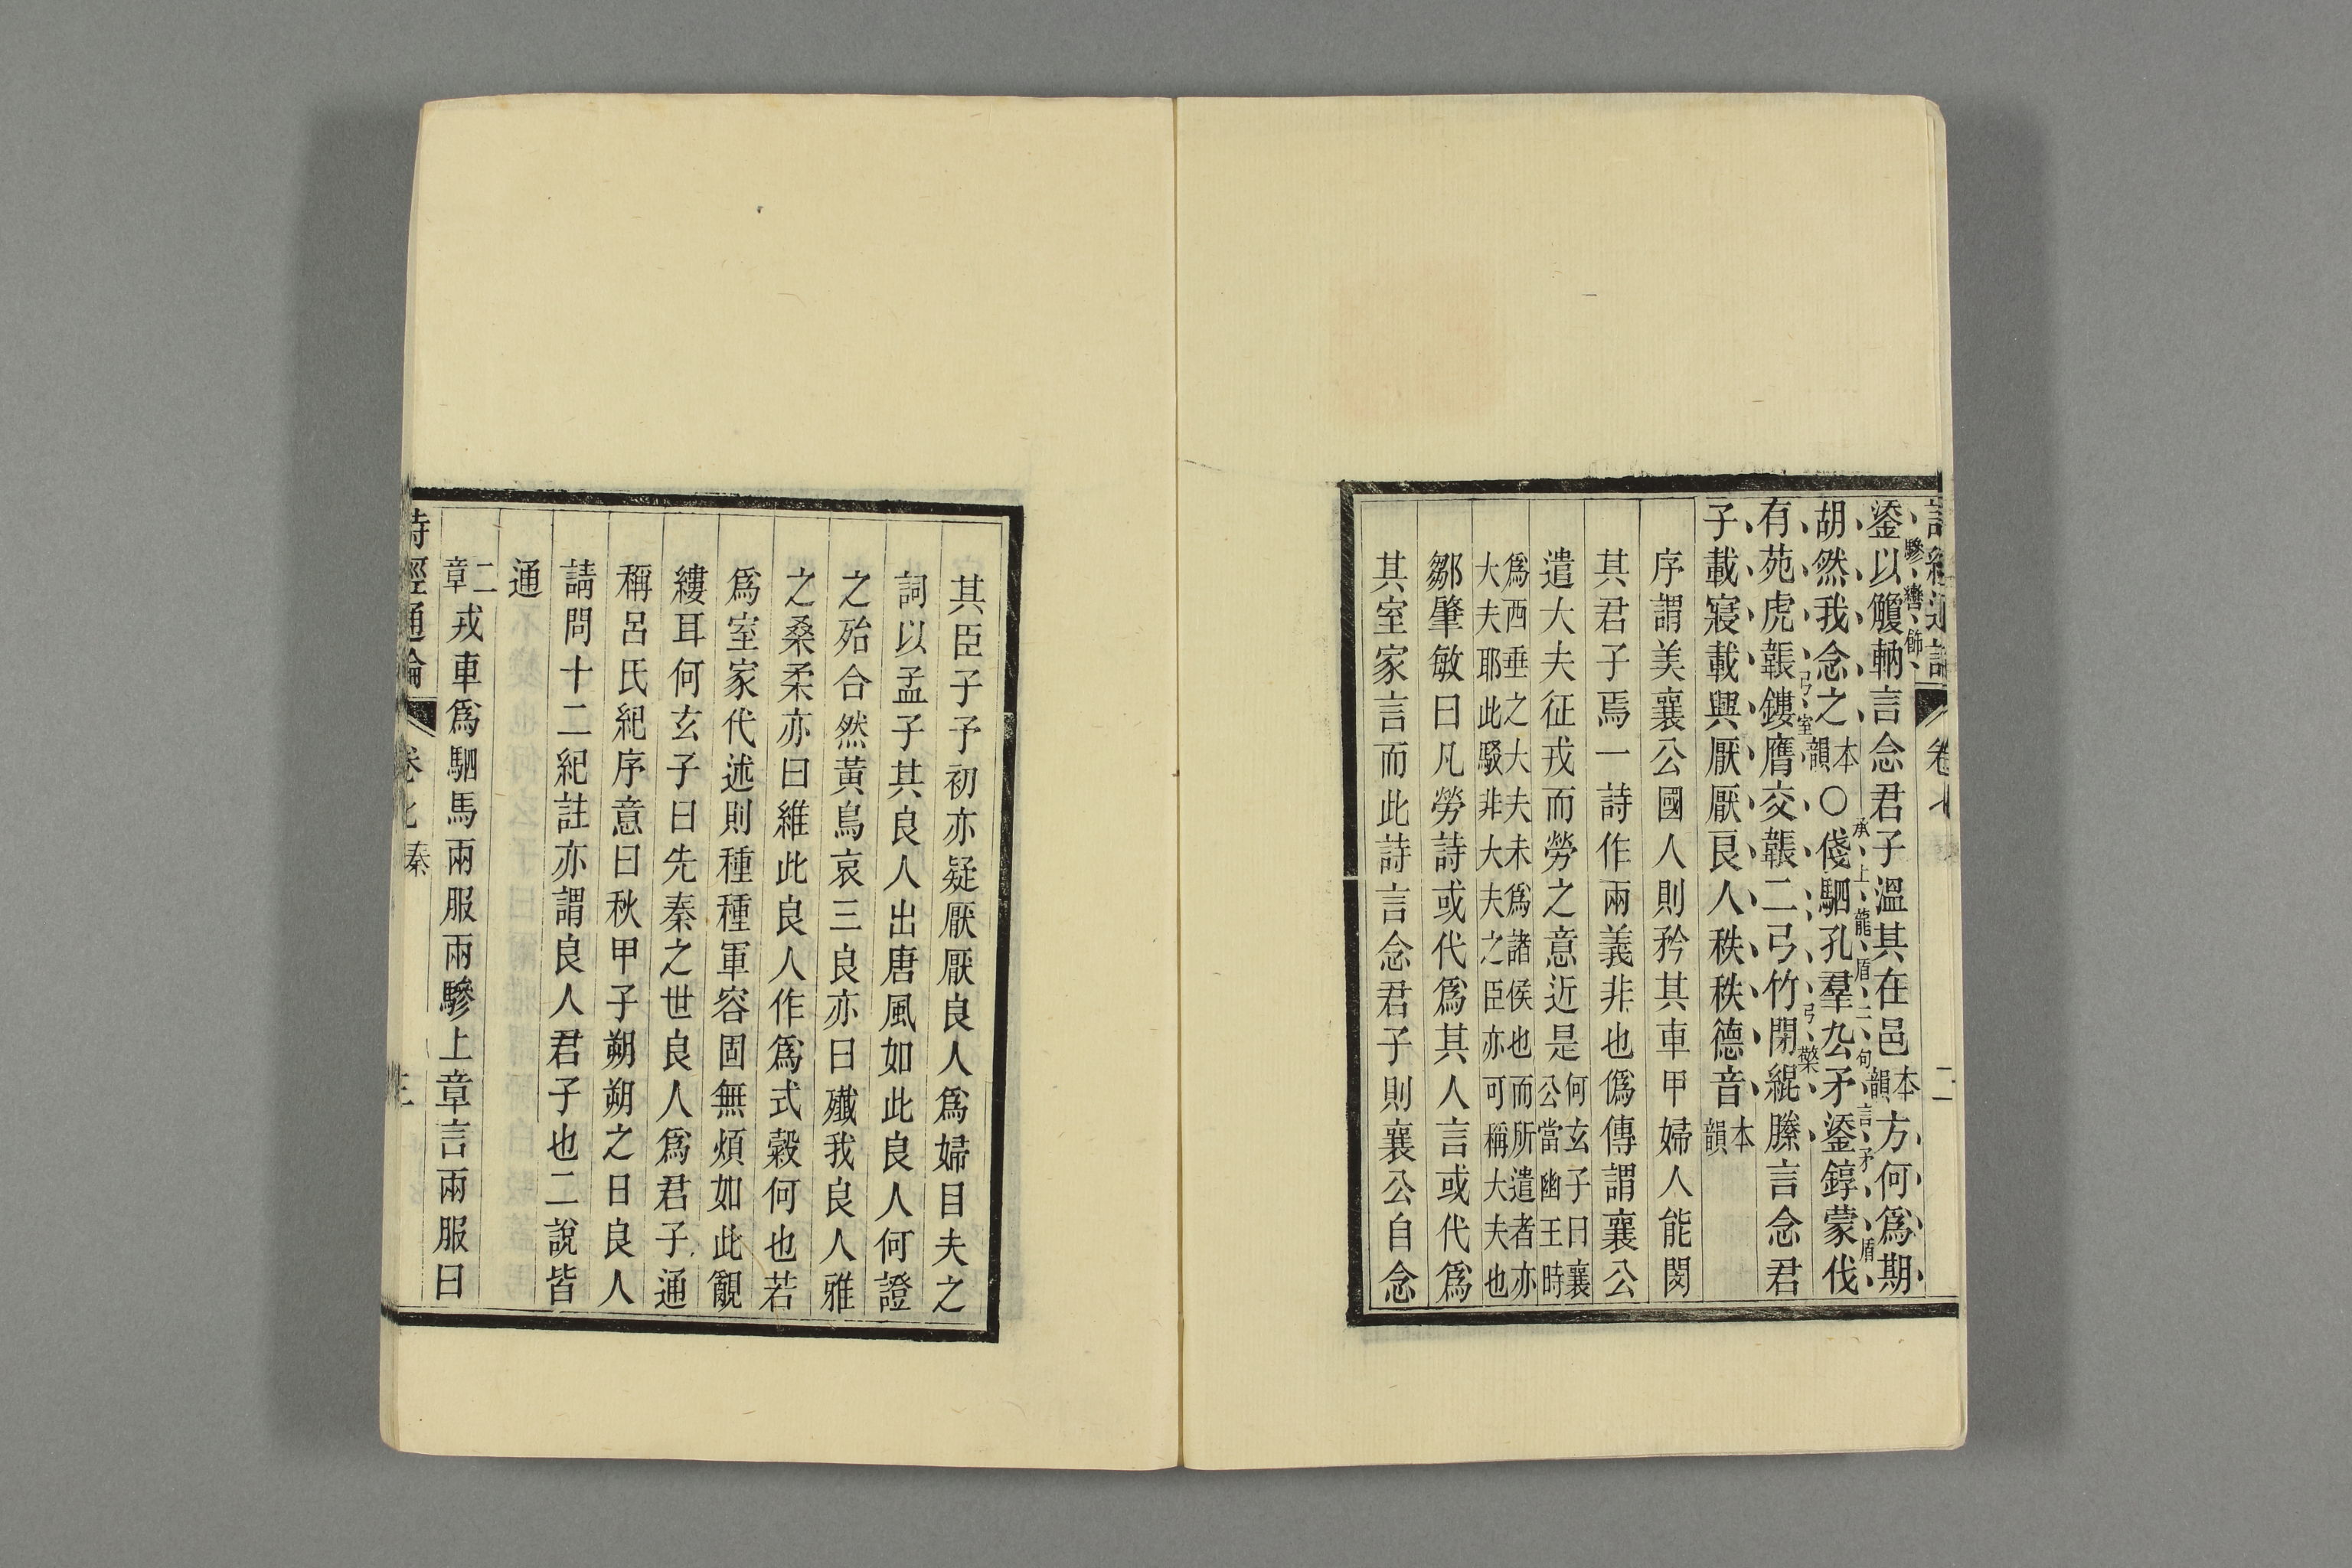 鋈以觼軜言念君子溫其在邑本韻方何爲期
驂轡飾
胡然我念之本韻〇俴駟孔羣厹矛鋈錞蒙伐
承上龍盾二句言矛盾
有苑虎韔鏤膺交韔二弓竹閉緄縢言念君
弓室弓檠
子載寢載興厭厭良人秩秩德音本韻
序謂美襄公國人則矜其車甲婦人能閔
其君子焉一詩作兩義非也僞傳謂襄公
遣大夫征戎而勞之意近是何玄子曰襄公當幽王時
爲西垂之大夫未爲諸侯也而所遣者亦大夫耶此駁非大夫之臣亦可稱大夫也
鄒肇敏曰凡勞詩或代爲其人言或代爲
其室家言而此詩言念君子則襄公自念
卷七
二
其臣子予初亦疑厭厭良人爲婦目夫之
詞以孟子其良人出唐風如此良人何證
之殆合然黃鳥哀三良亦曰殲我良人雅
之桑柔亦曰維此良人作爲式穀何也若
爲室家代述則種種軍容固無煩如此覼
縷耳何玄子曰先秦之世良人爲君子通
稱呂氏紀序意曰秋甲子朔朔之日良人
請問十二紀註亦謂良人君子也二說皆
通
二章戎車爲駟馬兩服兩驂上章言兩服曰
詩經通論
卷七秦
三